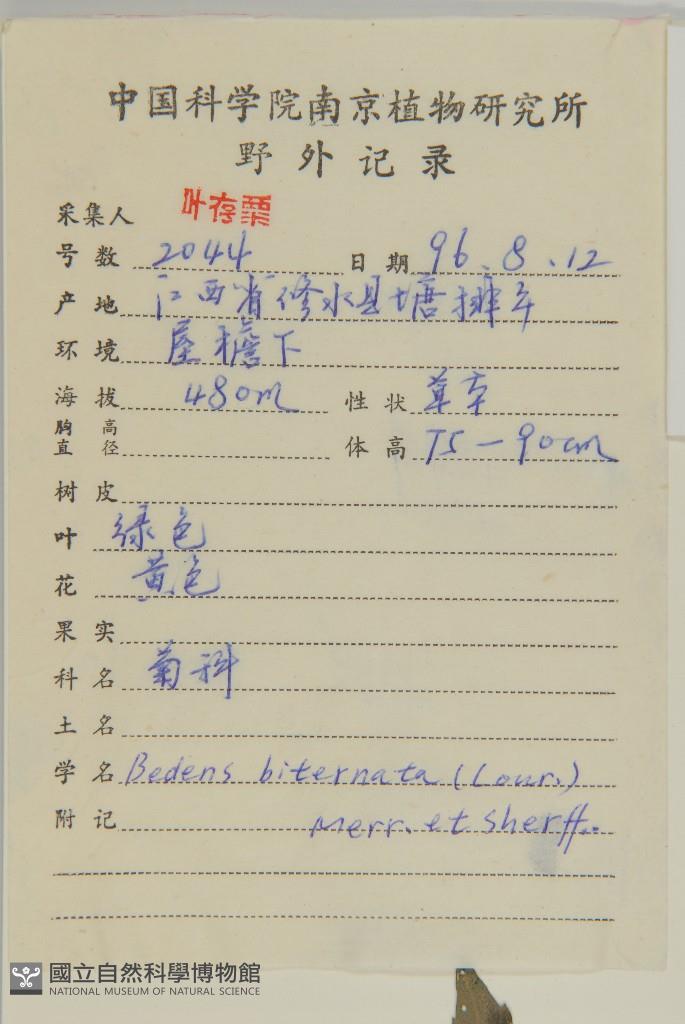 中国科学院南京植物研究所
野外记录
采集人 叶存粟
号数 2044 日期 96.8.12
产地 江西省修水县塘排乡
环境 屋檐下
海拔 480m 性状 草本
胸高直径 体高 75-90cm
树皮
叶 绿色
花 黄色
果实
科名 菊科
土名
学名 Bedens biternata (Lour.)
附记 Merr. et Sherff.
國立自然科學博物館
NATIONAL MUSEUM OF NATURAL SCIENCE